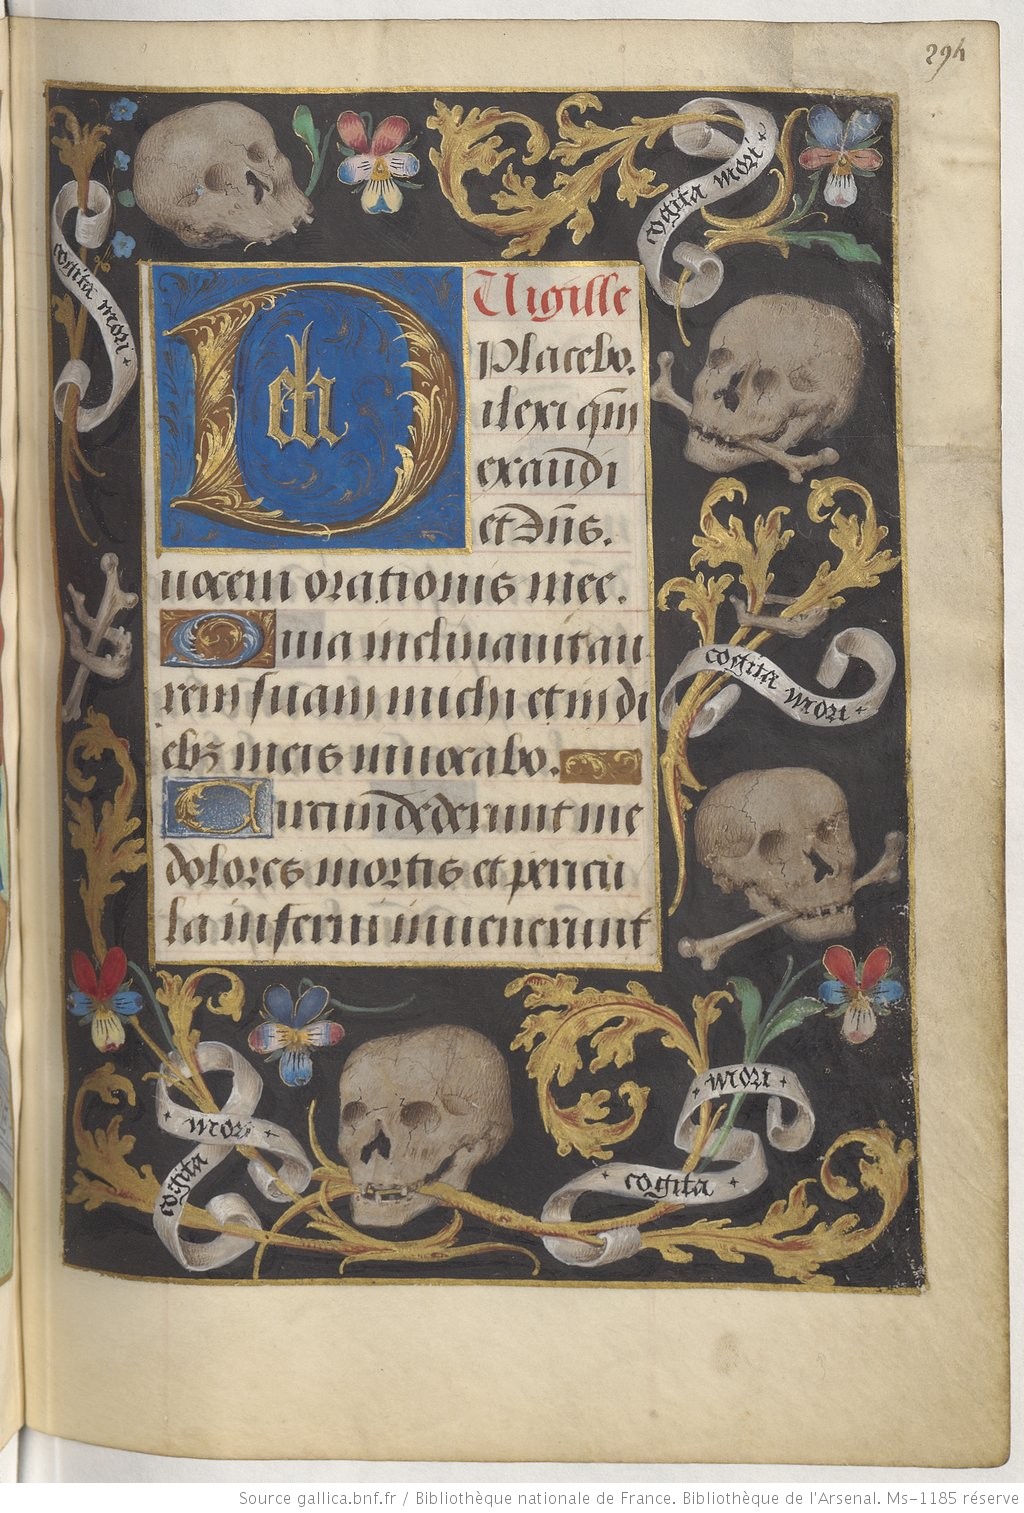 294
cogita mori
cogita mori
Vigille
Placebo.
ilexi qm̄
exaudi
et dn̄s.
vocem orationis mee.
Quia inclinavit au
rem suam michi et in di
ebꝫ meis invocabo.
Circundederunt me
dolores mortis et pericu
la inferni invenerunt
cogita mori
mori
cogita
mori
cogita
Source gallica.bnf.fr / Bibliothèque nationale de France. Bibliothèque de l'Arsenal. Ms-1185 réserve